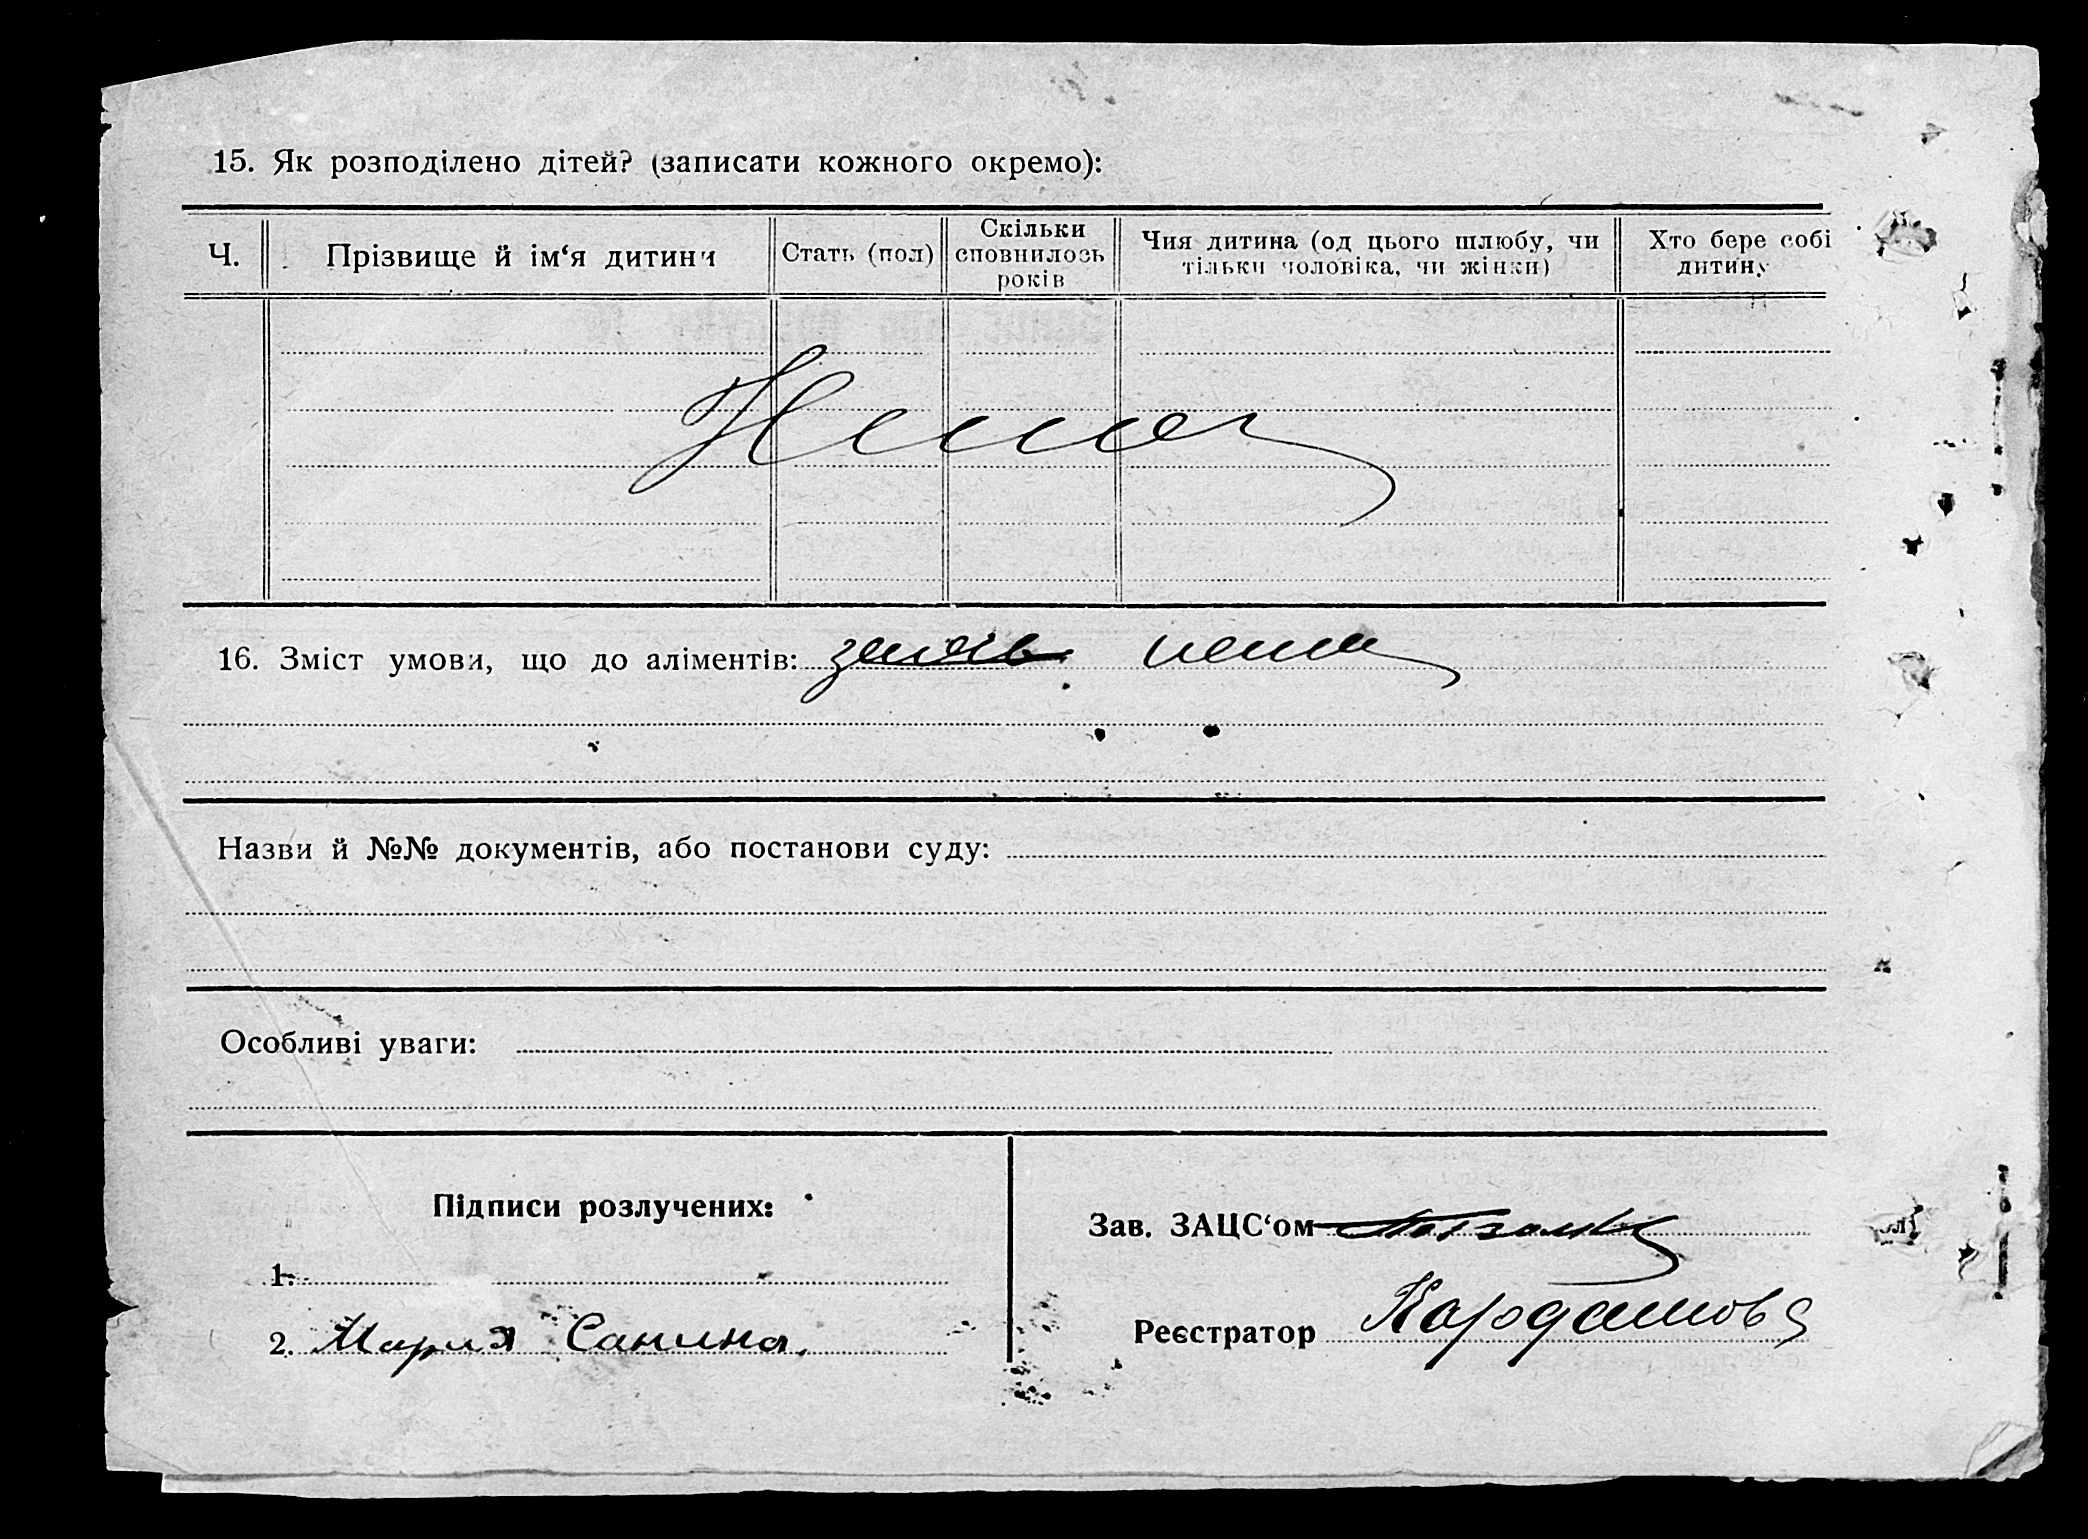 15. Як розподілено дітей? (записати кожного окремо):
Ч. Прізвище й ім‘я дитини Стать (пол) Скільки сповнилось років Чия дитина (од цього шлюбу, чи тільки чоловіка, чи жінки) Хто бере собі дитину
Нема
16. Зміст умови, що до аліментів: нема
Назви й №№ документів, або постанови суду:
Особливі уваги:
Підписи розлучених:
Зав. ЗАЦС‘ом
1.
2. Мария Санина.
Реєстратор Кардашова